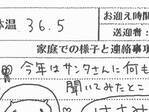 体温 36.5
お迎え時間
送迎者
家庭での様子と連絡事
今年はサンタさんに何も
聞いてみたとこ